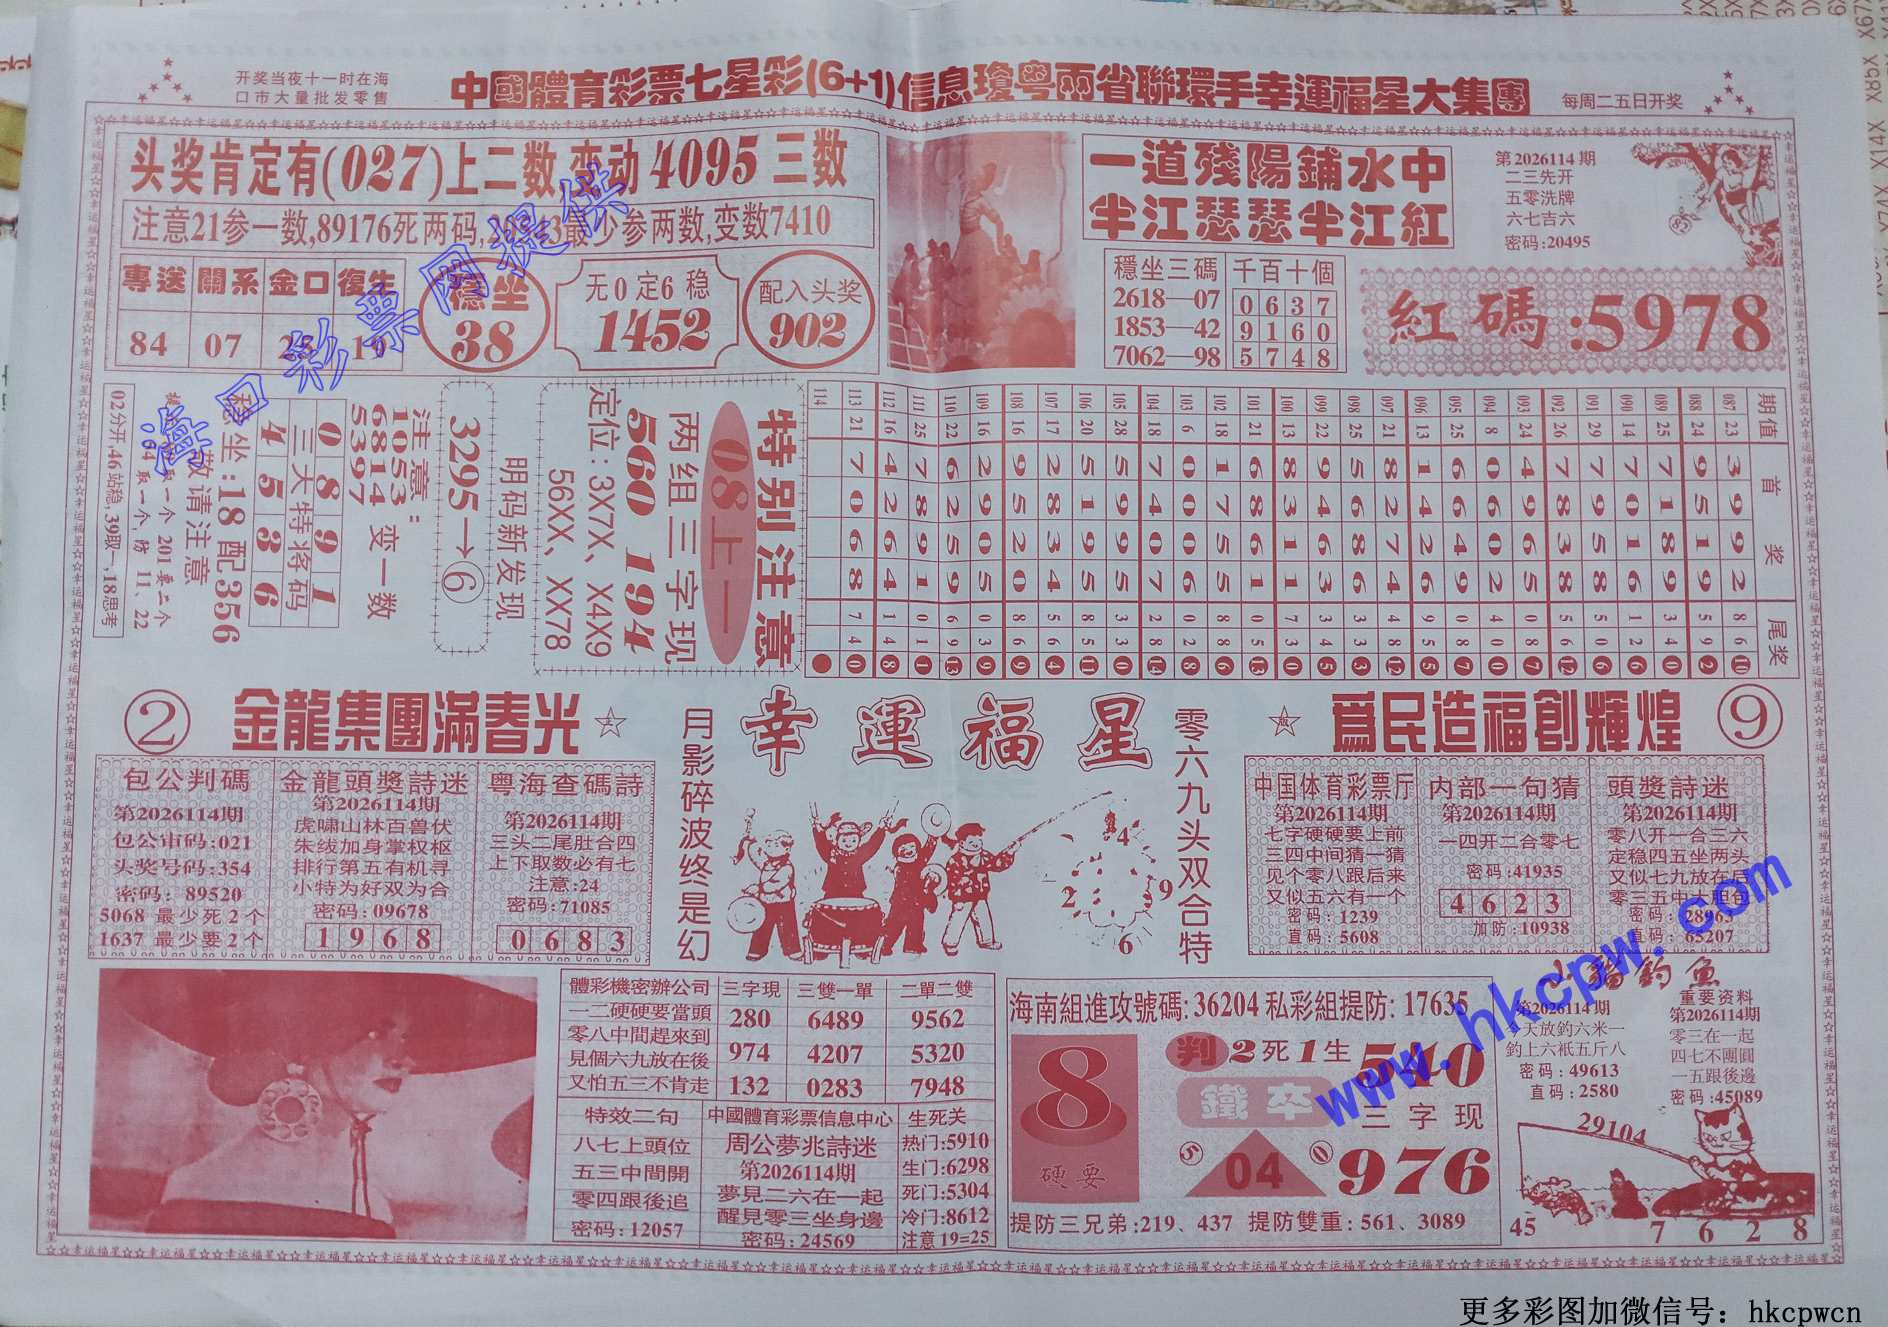 开奖当夜十一时在海
口市大量批发零售
中國體育彩票七星彩(6+1)信息瓊粤兩省聯環手幸運福星大集團
每周二五日开奖
头奖肯定有(027)上二数,变动4095三数
注意21参一数,89176死两码,
最少参两数,变数7410
專送 關系 金口 復生
84 07
穩坐
38
无0定6稳
1452
配入头奖
902
一道殘陽鋪水中
半江瑟瑟半江紅
第2026114期
二三先开
五零洗牌
六七吉六
密码:20495
穩坐三碼
2618—07
1853—42
7062—98
千百十個
0 6 3 7
9 1 6 0
5 7 4 8
紅碼:5978
02分开,46站稳,39取一,18思考
取一个 201要二个
取一个,防 11、22
敬请注意
稳坐:18配356
4 5 3 6
三大特将码
0 8 9 1
注意:
1053
6814
5397
变一数
3295→⑥
明码新发现
特别注意
08上一
两组三字现
560 194
定位:3X7X、X4X9
56XX、XX78
期值 首奖 尾奖
087 23 3 9 9 2 8 6 10
088 24 9 5 1 9 5 9 2
089 25 7 1 8 9 3 4 0
090 14 7 0 1 6 1 2 6
091 29 7 9 5 8 5 0 6
092 26 7 8 3 8 5 6 12
093 24 4 9 6 5 0 8 7
094 8 0 6 0 2 4 0 0
095 25 6 6 4 9 0 8 7
096 13 1 4 2 6 9 5 5
097 21 8 2 7 4 4 8 12
098 25 5 6 8 6 3 3 3
099 22 9 4 6 3 3 4 5
100 13 8 3 1 1 7 3 0
101 21 6 8 6 1 0 5 13
102 18 1 7 5 5 8 8 6
103 6 0 0 0 6 0 2 8
104 18 7 4 0 7 2 8 14
105 28 5 9 9 5 3 3 0
106 20 5 1 9 5 8 5 11
107 17 2 8 3 4 5 6 4
108 16 9 5 2 0 8 6 9
109 16 2 9 0 5 0 3 9
110 22 6 2 5 9 6 9 13
111 25 7 8 9 1 0 1 1
112 16 4 2 6 4 1 4 8
113 21 7 0 6 8 7 4 0
114
② 金龍集團滿春光
月影碎波终是幻
幸運福星
零六九头双合特
爲民造福創輝煌 ⑨
包公判碼
第2026114期
包公审码:021
头奖号码:354
密码:89520
5068 最少死2个
1637 最少要2个
金龍頭獎詩迷
第2026114期
虎嘯山林百兽伏
朱绂加身掌权枢
排行第五有机寻
小特为好双为合
密码:09678
1 9 6 8
粤海查碼詩
第2026114期
三头二尾肚合四
上下取数必有七
注意:24
密码:71085
0 6 8 3
4
2
9
6
中国体育彩票厅
第2026114期
七字硬硬要上前
三四中间猜一猜
见个零八跟后来
又似五六有一个
密码:1239
直码:5608
内部一句猜
第2026114期
一四开二合零七
密码:41935
4 6 2 3
加防:10938
頭獎詩迷
第2026114期
零八开一合三六
定稳四五坐两头
又似七九放在后
零三五中大胆包
密码:28963
直码:65207
體彩機密辦公司
一二硬硬要當頭
零八中間趕來到
見個六九放在後
又怕五三不肯走
三字現 三雙一單 二單二雙
280 6489 9562
974 4207 5320
132 0283 7948
特效二句
八七上頭位
五三中間開
零四跟後追
密码:12057
中國體育彩票信息中心
周公夢兆詩迷
第2026114期
夢見二六在一起
醒見零三坐身邊
密码:24569
生死关
热门:5910
生门:6298
死门:5304
冷门:8612
注意19=25
海南組進攻號碼:36204 私彩組提防:17635
8
硬要
判2死1生 540
鐵卒
三字现
⑤ 04 ⓪ 976
提防三兄弟:219、437 提防雙重:561、3089
釣魚
第2026114期
天放釣六米一
釣上六衹五斤八
密码:49613
直码:2580
重要资料
第2026114期
零三在一起
四七不團圓
一五跟後邊
密码:45089
29104
45 7 6 2 8
海口彩票网提供
www.hkcpw.com
更多彩图加微信号: hkcpwcn